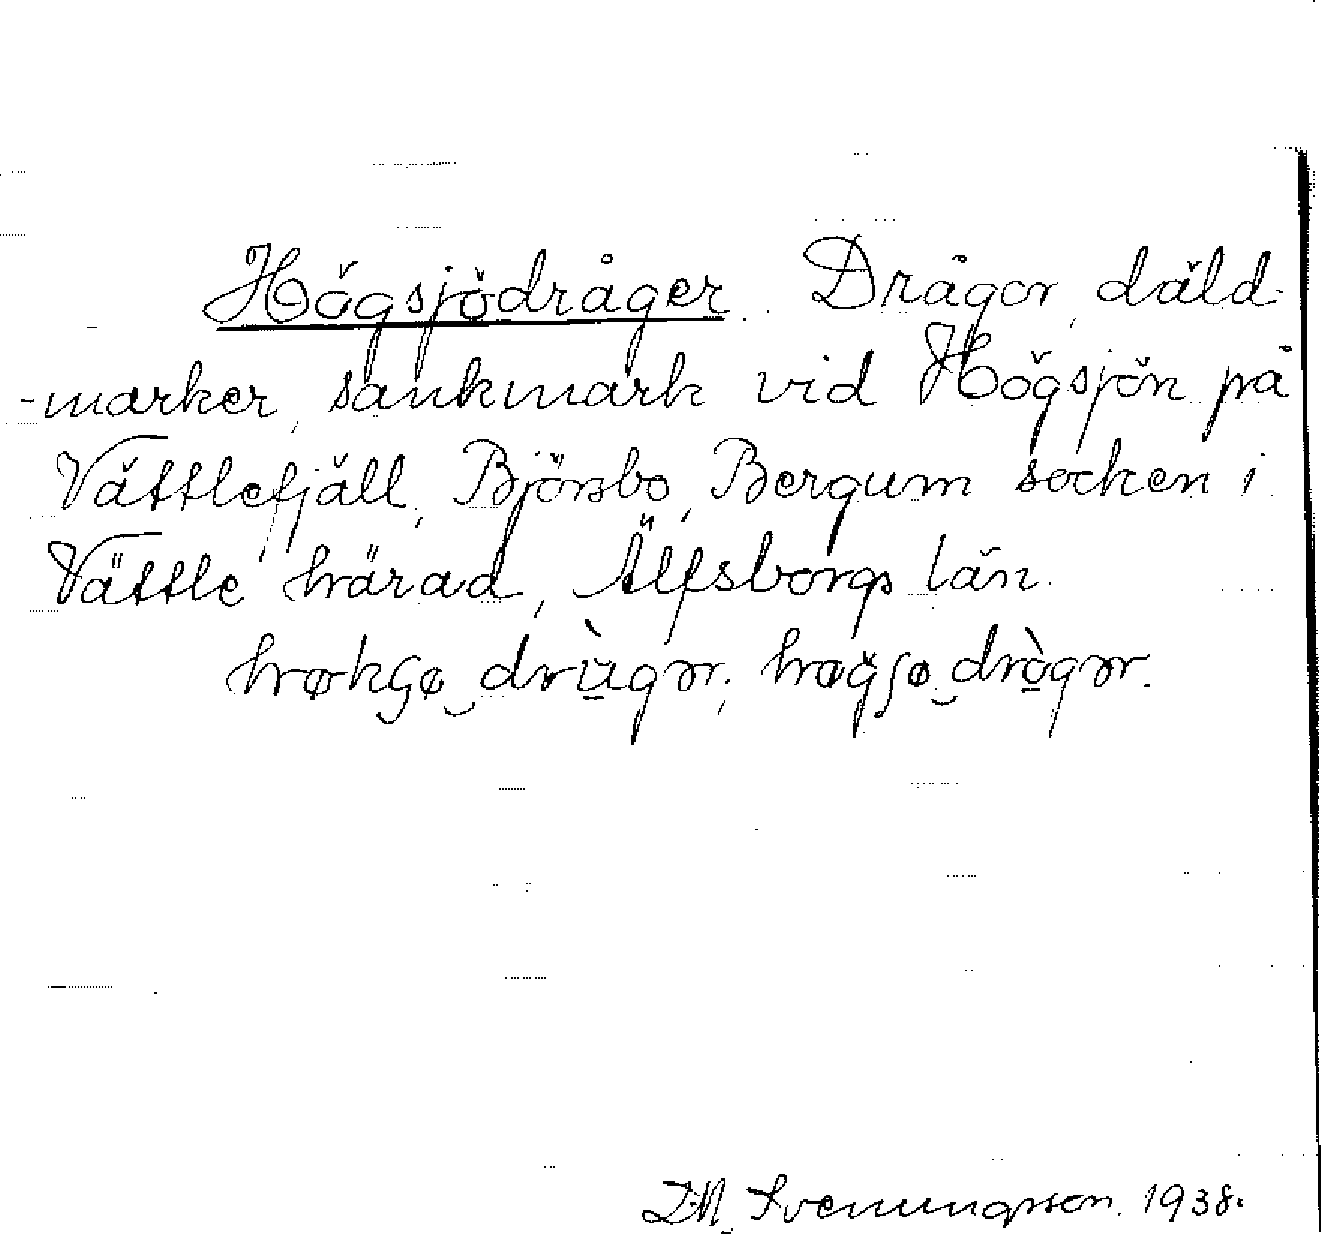 Högsjödråger. Drågor, däld-
-marker, sankmark vid Högsjön på
Vättlefjäll, Björsbo, Bergum socken i
Vättle härad, Älfsborgs län.
I.M. Svenungsson. 1938.